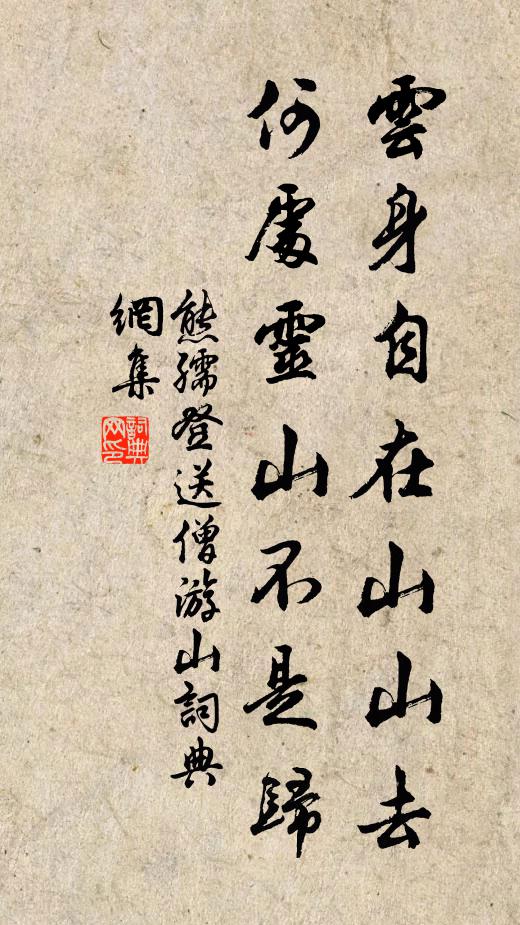 雲身自在山山去
何處靈山不是歸
熊孺登送僧游山詞典
網集
詞典
网印